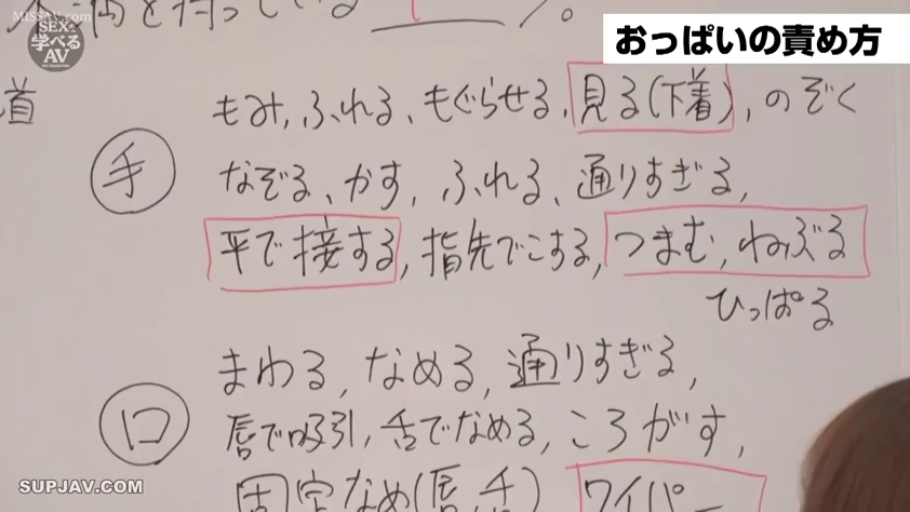 MISSAV.com
SEXを
学べる
AV
おっぱいの責め方
不満を持っている %。
道
もみ,ふれる、もぐらせる,見る(下着),のぞく
手
なぞる、かす,ふれる、通りすぎる,
平で接する,指先でこする,つまむ,ねぶる
ひっぱる
まわる,なめる,通りすぎる,
口
唇で吸引,舌でなめる,ころがす,
固定なめ(唇,舌) ワイパー
SUPJAV.COM